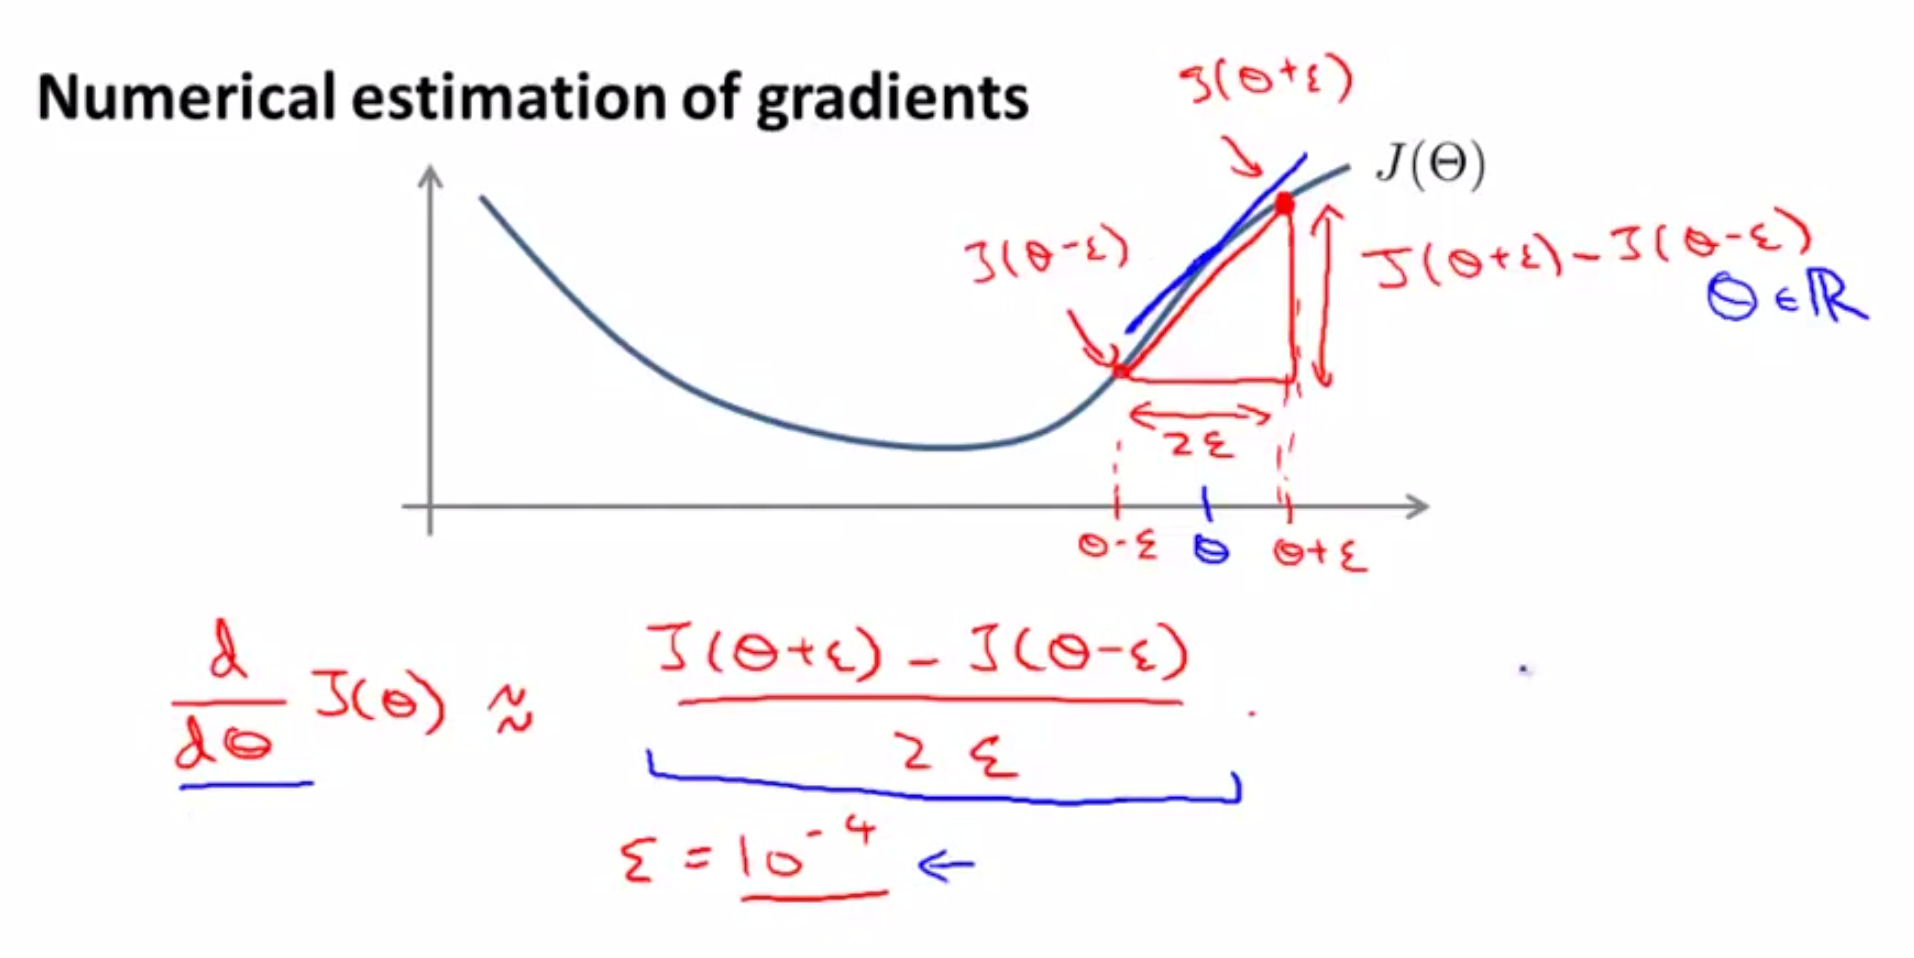 Numerical estimation of gradients
J(θ+ε)
J(Θ)
J(θ-ε)
J(θ+ε) - J(θ-ε)
θ ∈ ℝ
2ε
θ-ε θ θ+ε
d/dθ J(θ) ≈ J(θ+ε) - J(θ-ε) / 2ε
ε = 10^-4 ←